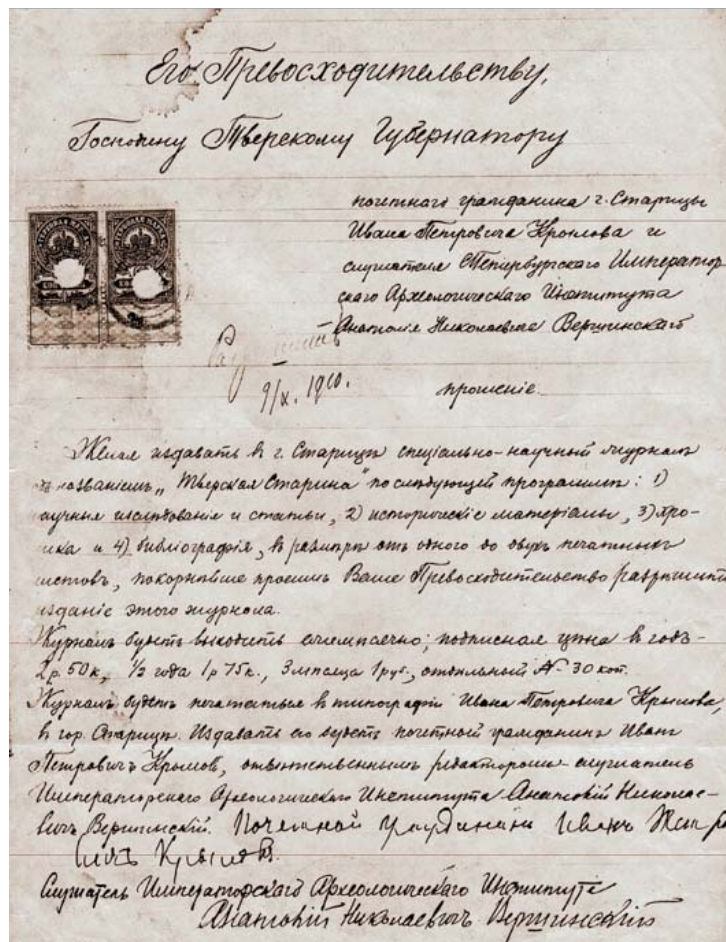 Его Превосходительству,
Господину Тверскому Губернатору
почетнаго гражданина г. Старицы
Ивана Петровича Крылова и
слушателя СПетербургскаго Император-
скаго Археологическаго Института
Анатолія Николаевича Вершинскаго
9/X. 1910.
прошеніе.
Желая издавать в г. Старицѣ спеціально-научный журналъ
названіемъ „Тверская Старина" по слѣдующей программѣ: 1)
научныя изслѣдованія и статьи, 2) историческіе матеріалы, 3) хро-
ника и 4) библіографія, в размѣрѣ отъ одного до двухъ печатныхъ
листовъ, покорнѣйше просимъ Ваше Превосходительство разрѣшить
изданіе этого журнала.
Журналъ будетъ выходить ежемѣсячно; подписная цѣна в годъ-
2р 50к, 1/2 года 1р 75к., 3 мѣсяца 1руб., отдѣльный № 30 коп.
Журналъ будетъ печататься в типографіи Ивана Петровича Крылова,
в гор. Старицѣ. Издавать его будетъ почетный гражданинъ Иванъ
Петровичъ Крылов, отвѣтственнымъ редакторомъ - слушатель
Императорскаго Археологическаго Института Анатолій Николае-
вичъ Вершинскій. Почетной гражданинъ Иванъ Петро
вичъ Крылов.
Слушатель Императорскаго Археологическаго Института
Анатолій Николаевичъ Вершинскій